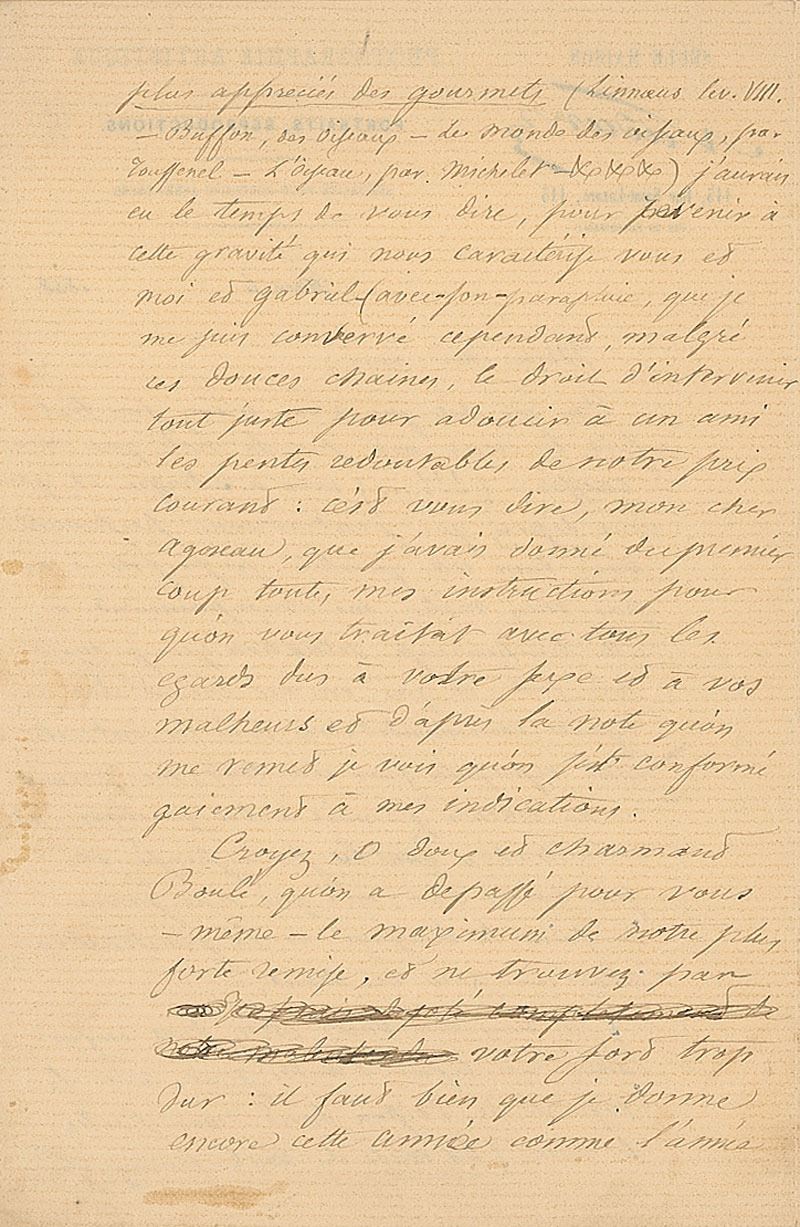 plus appréciés des gourmets (Linnæus lev. VIII.
– Buffon, des oiseaux – Le monde des oiseaux, par
Toussenel – L'Oiseau, par Michelet – &&&) j'aurais
eu le temps de vous dire, pour revenir à
cette gravité qui nous caractérise vous et
moi et Gabriel (avec-son-parapluie, que je
me suis conservé cependant, malgré
ces douces chaines, le droit d'intervenir
tout juste pour adoucir à un ami
les pentes redoutables de notre prix
courant : c'est vous dire, mon cher
agneau, que j'avais donné du premier
coup toutes mes instructions pour
qu'on vous traitât avec tous les
egards dus à votre sexe et à vos
malheurs et d'après la note qu'on
me remet je vois qu'on s'est conformé
gaiement à mes indications.
Croyez, O doux et charmant
Boulé, qu'on a depassé pour vous
– même – le maximum de notre plus
forte remise, et ne trouvez pas
votre sort trop
dur : il faut bien que je donne
encore cette année comme l'année